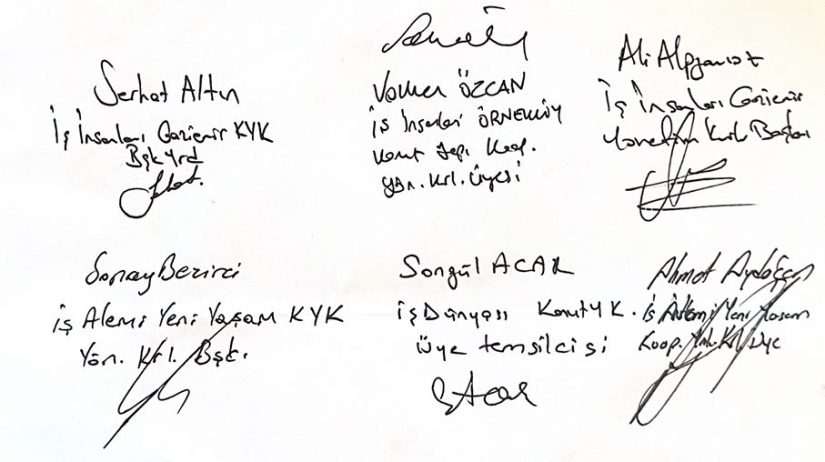 Serhat Altın
İş İnsanları Gaziemir KYK
Bşk Yrd
Volkan ÖZCAN
İş İnsanları ÖRNEKKÖY
Konut Yapı Koop.
Yön. Krl. Üyesi
Ali
İş İnsanları Gaziemir
Yönetim Kurulu Başkanı
Sonay Bezirci
iş Alemi Yeni Yaşam KYK
Yön. Krl. Bşk.
Songül ACAR
iş Dünyası Konut Y K.
Üye temsilcisi
S Acar
Ahmet
İş Alemi Yeni Yaşam
Koop. Ynt. Krl. Üye